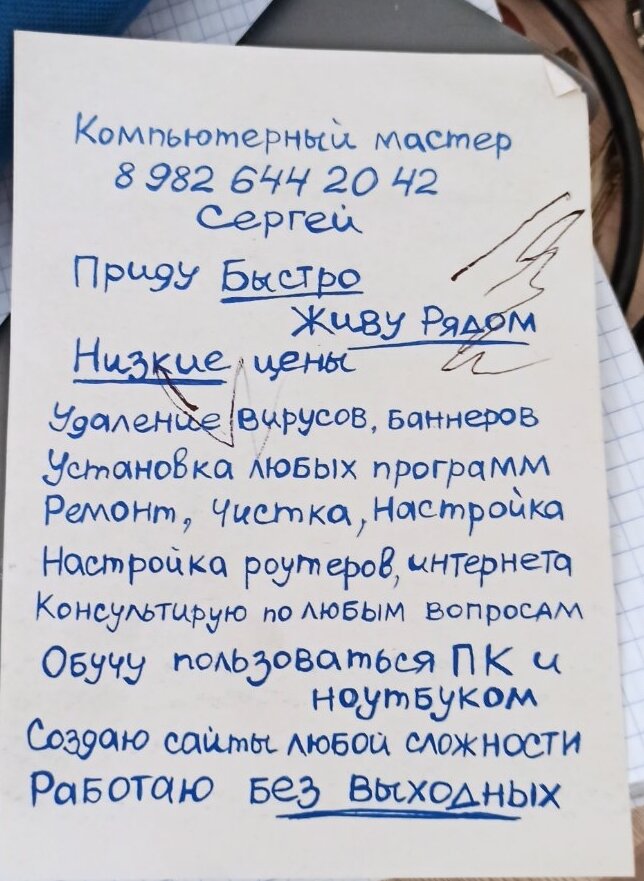 Компьютерный мастер
8 982 644 20 42
Сергей
Приду Быстро
Живу Рядом
Низкие цены
Удаление вирусов, баннеров
Установка любых программ
Ремонт, Чистка, Настройка
Настройка роутеров, интернета
Консультирую по любым вопросам
Обучу пользоваться ПК и
ноутбуком
Создаю сайты любой сложности
Работаю без выходных